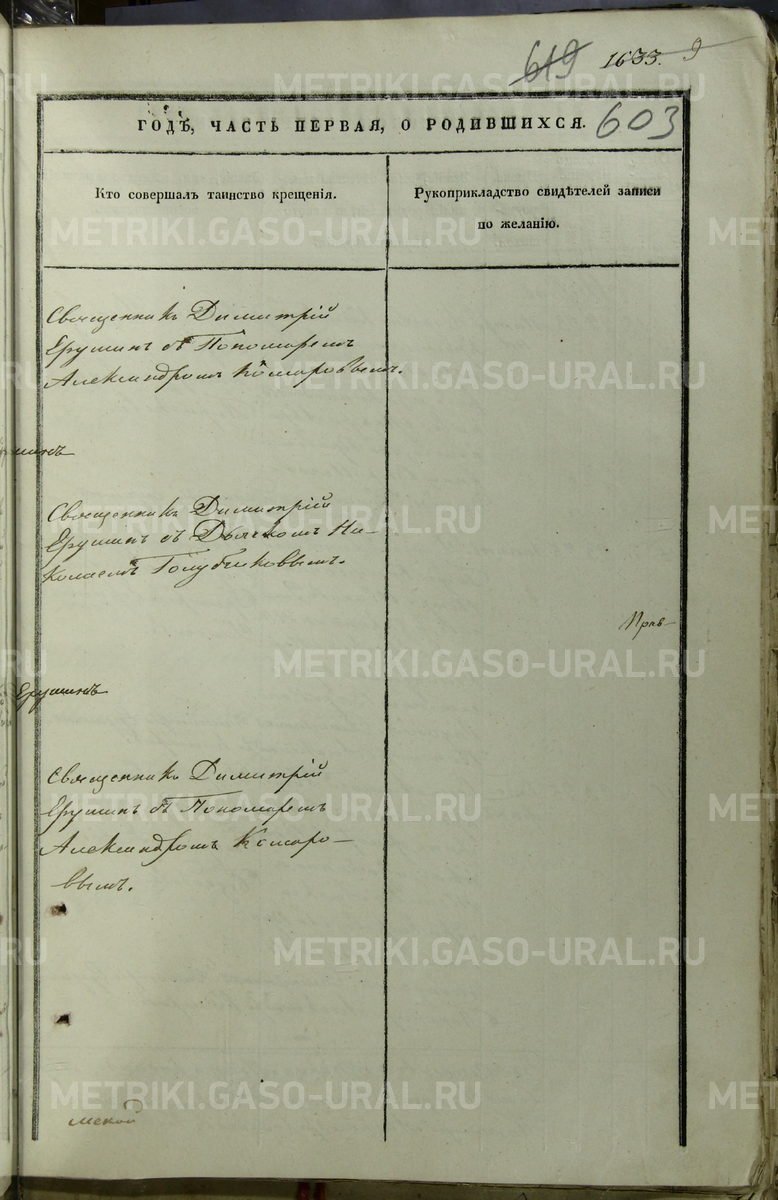 619 1633. 9
ГОДѢ, ЧАСТЬ ПЕРВАЯ, О РОДИВШИХСЯ. 603
Кто совершалъ таинство крещенія.
Рукоприкладство свидѣтелей записи
по желанію.
Священникъ Димитрій
Ерушинъ съ Пономаремъ
Александромъ Комаровымъ.
шинъ
Священникъ Димитрій
Ерушинъ съ Дьячкомъ Ни-
колаемъ Голубчиковымъ.
Прав-
Ерушинъ
Священникъ Димитрій
Ерушинъ съ Пономаремъ
Александромъ Комаро-
вымъ.
мской
METRIKI.GASO-URAL.RU